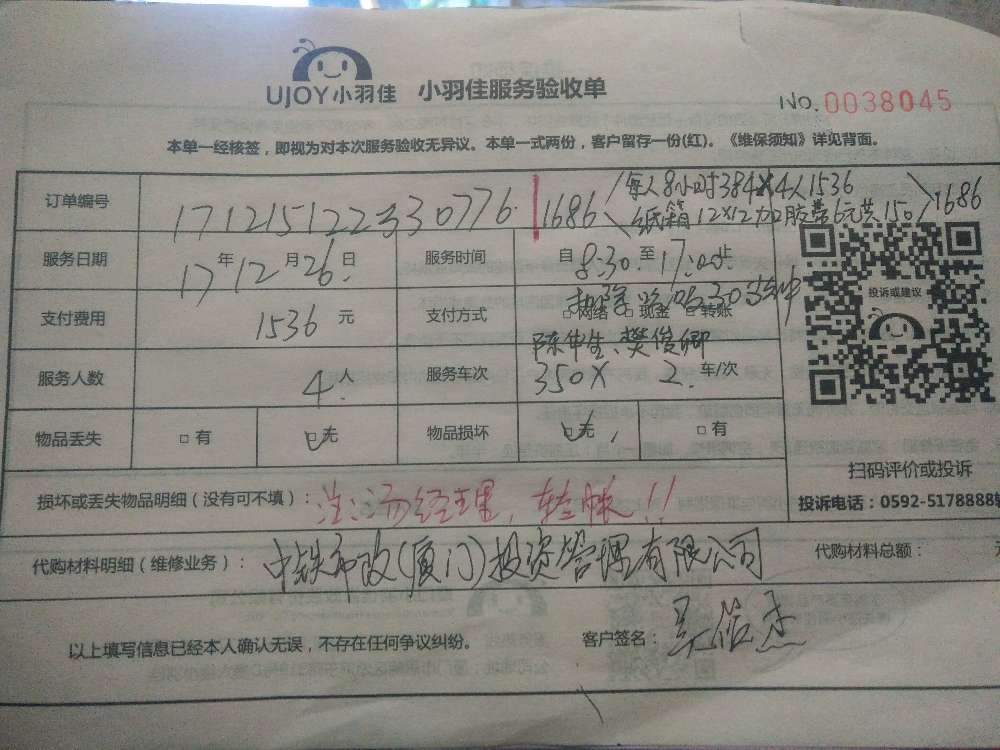 UJOY小羽佳 小羽佳服务验收单
No.0038045
本单一经核签，即视为对本次服务验收无异议。本单一式两份，客户留存一份(红)。《维保须知》详见背面。
订单编号 171215122330776 1686 每人8小时384×4人1536 1686
纸箱12×12加2胶带6元共150
服务日期 17年12月26日 服务时间 自8:30至17:00止
支付费用 1536元 支付方式 □网络 □现金 □转账
陈伟生、樊俊卿
服务人数 4人 服务车次 350× 2车/次
物品丢失 □有 □无 物品损坏 □无 □有
投诉或建议
扫码评价或投诉
投诉电话：0592-5178888
损坏或丢失物品明细（没有可不填）：注：汤经理，转账！！
代购材料明细（维修业务）：中铁市政(厦门)投资管理有限公司 代购材料总额：
以上填写信息已经本人确认无误，不存在任何争议纠纷。 客户签名：